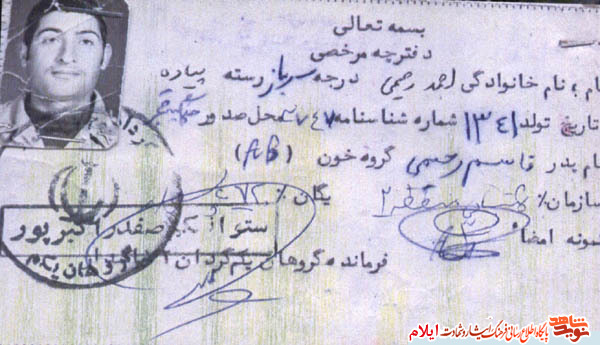 بسمه تعالی
دفترچه مرخصی
نام و نام خانوادگی احمد رحیمی درجه سرباز رسته پیاده
تاریخ تولد ۱۳۴۱ شماره شناسنامه ۷۴۷ محل صدور
نام پدر قاسم رحیمی گروه خون (AB)
سازمان٪ یگان٪
نمونه امضاء
ستوانیکم صفدر اکبرپور
فرمانده گروهان یکم گردان
گروهان یکم
نوید شاهد پایگاه اطلاع رسانی فرهنگ ایثار و شهادت ایلام